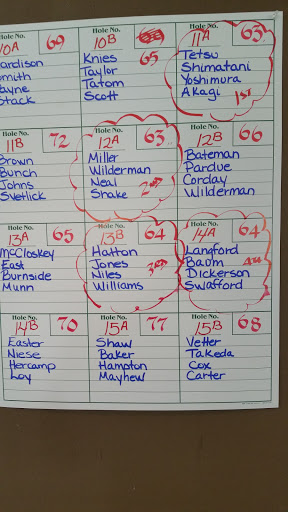 Hole No.
10A 69
ardison
mith
ayne
tack
Hole No.
10B
65
Knies
Taylor
Tatom
Scott
Hole No.
11A 63
Tetsu
Shimatani
Yoshimura
Akagi
1st
Hole No.
11B 72
Brown
Bunch
Johns
Svetlick
Hole No.
12A 63
Miller
Wilderman
Neal
Shake
2nd
Hole No.
12B 66
Bateman
Pardue
Corday
Wilderman
Hole No.
13A 65
McCloskey
East
Burnside
Munn
Hole No.
13B 64
Hatton
Jones
Niles
Williams
3rd
Hole No.
14A 64
Langford
Baum
Dickerson
Swafford
4th
Hole No.
14B 70
Easter
Niese
Hercamp
Loy
Hole No.
15A 77
Shaw
Baker
Hampton
Mayhew
Hole No.
15B 68
Vetter
Takeda
Cox
Carter